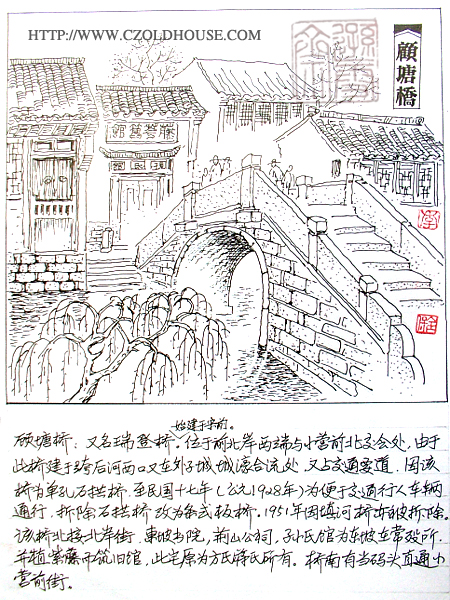 HTTP://WWW.CZOLDHOUSE.COM
顧塘橋
始建于宋前。
顾塘桥：又名瑞登桥，位于前北岸西端与小营前北交会处，由于
此桥建于跨后河西口又在外子城城濠合流处，又占交通要道，因该
桥为单孔石拱桥，至民国十七年(公元1928年)为便于交通行人车辆
通行，拆除石拱桥改为条式板桥。1951年因填河桥亦被拆除。
该桥北接北岸街，东坡书院，前山公祠，孙氏馆为东坡在常殁所，
并植紫藤而筑旧馆，此宅原为方氏蒋氏所有。桥南有当码头直通小
营前街。